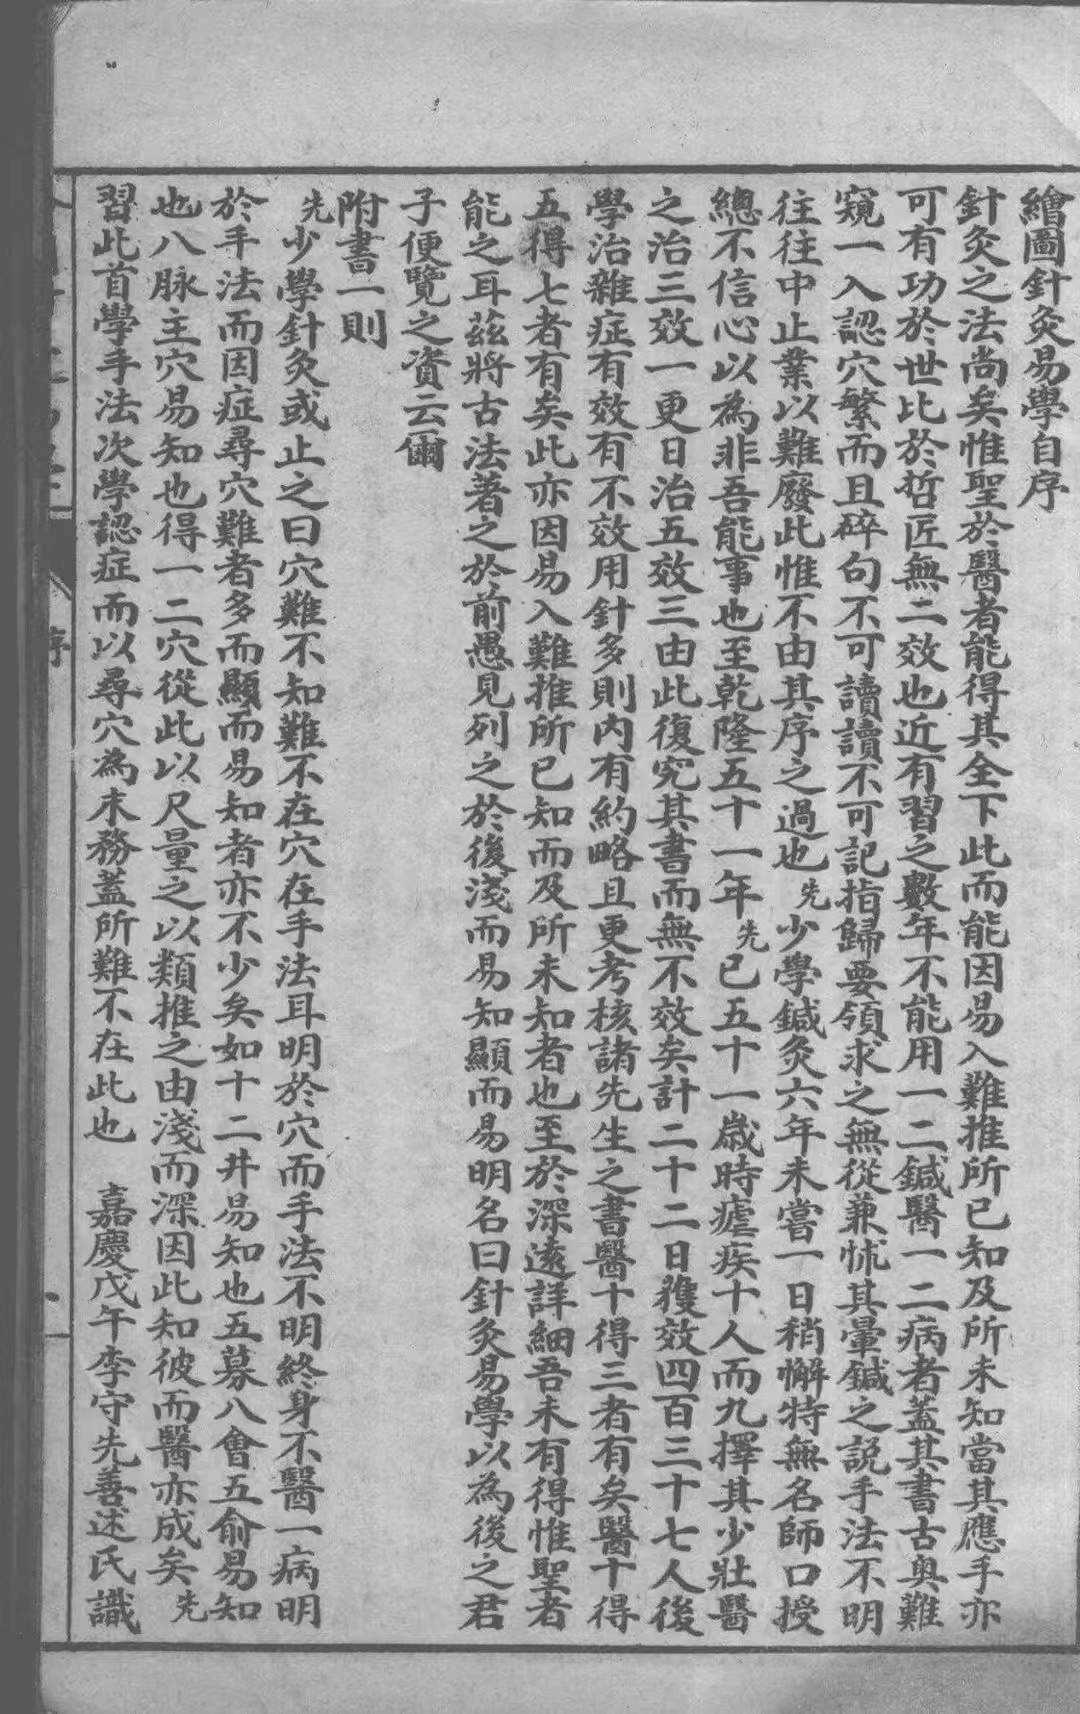 繪圖針灸易學自序
針灸之法尚矣惟聖於醫者能得其全下此而能因易入難推所已知及所未知當其應手亦
可有功於世比於哲匠無二效也近有習之數年不能用一二鍼醫一二病者蓋其書古奧難
窺一入認穴繁而且碎句不可讀讀不可記指歸要領求之無從兼怵其暈鍼之說手法不明
往往中止業以難廢此惟不由其序之過也先少學鍼灸六年未嘗一日稍懈特無名師口授
總不信心以為非吾能事也至乾隆五十一年先已五十一歲時瘧疾十人而九擇其少壯醫
之治三效一更日治五效三由此復究其書而無不效矣計二十二日獲效四百三十七人後
學治雜症有效有不效用針多則內有約略且更考核諸先生之書醫十得三者有矣醫十得
五得七者有矣此亦因易入難推所已知而及所未知者也至於深遠詳細吾未有得惟聖者
能之耳茲將古法著之於前愚見列之於後淺而易知顯而易明名曰針灸易學以為後之君
子便覽之資云爾
附書一則
先少學針灸或止之曰穴難不知難不在穴在手法耳明於穴而手法不明終身不醫一病明
於手法而因症尋穴難者多而顯而易知者亦不少矣如十二井易知也五募八會五俞易知
也八脉主穴易知也得一二穴從此以尺量之以類推之由淺而深因此知彼而醫亦成矣先
習此首學手法次學認症而以尋穴為末務蓋所難不在此也 嘉慶戊午李守先善述氏識
序